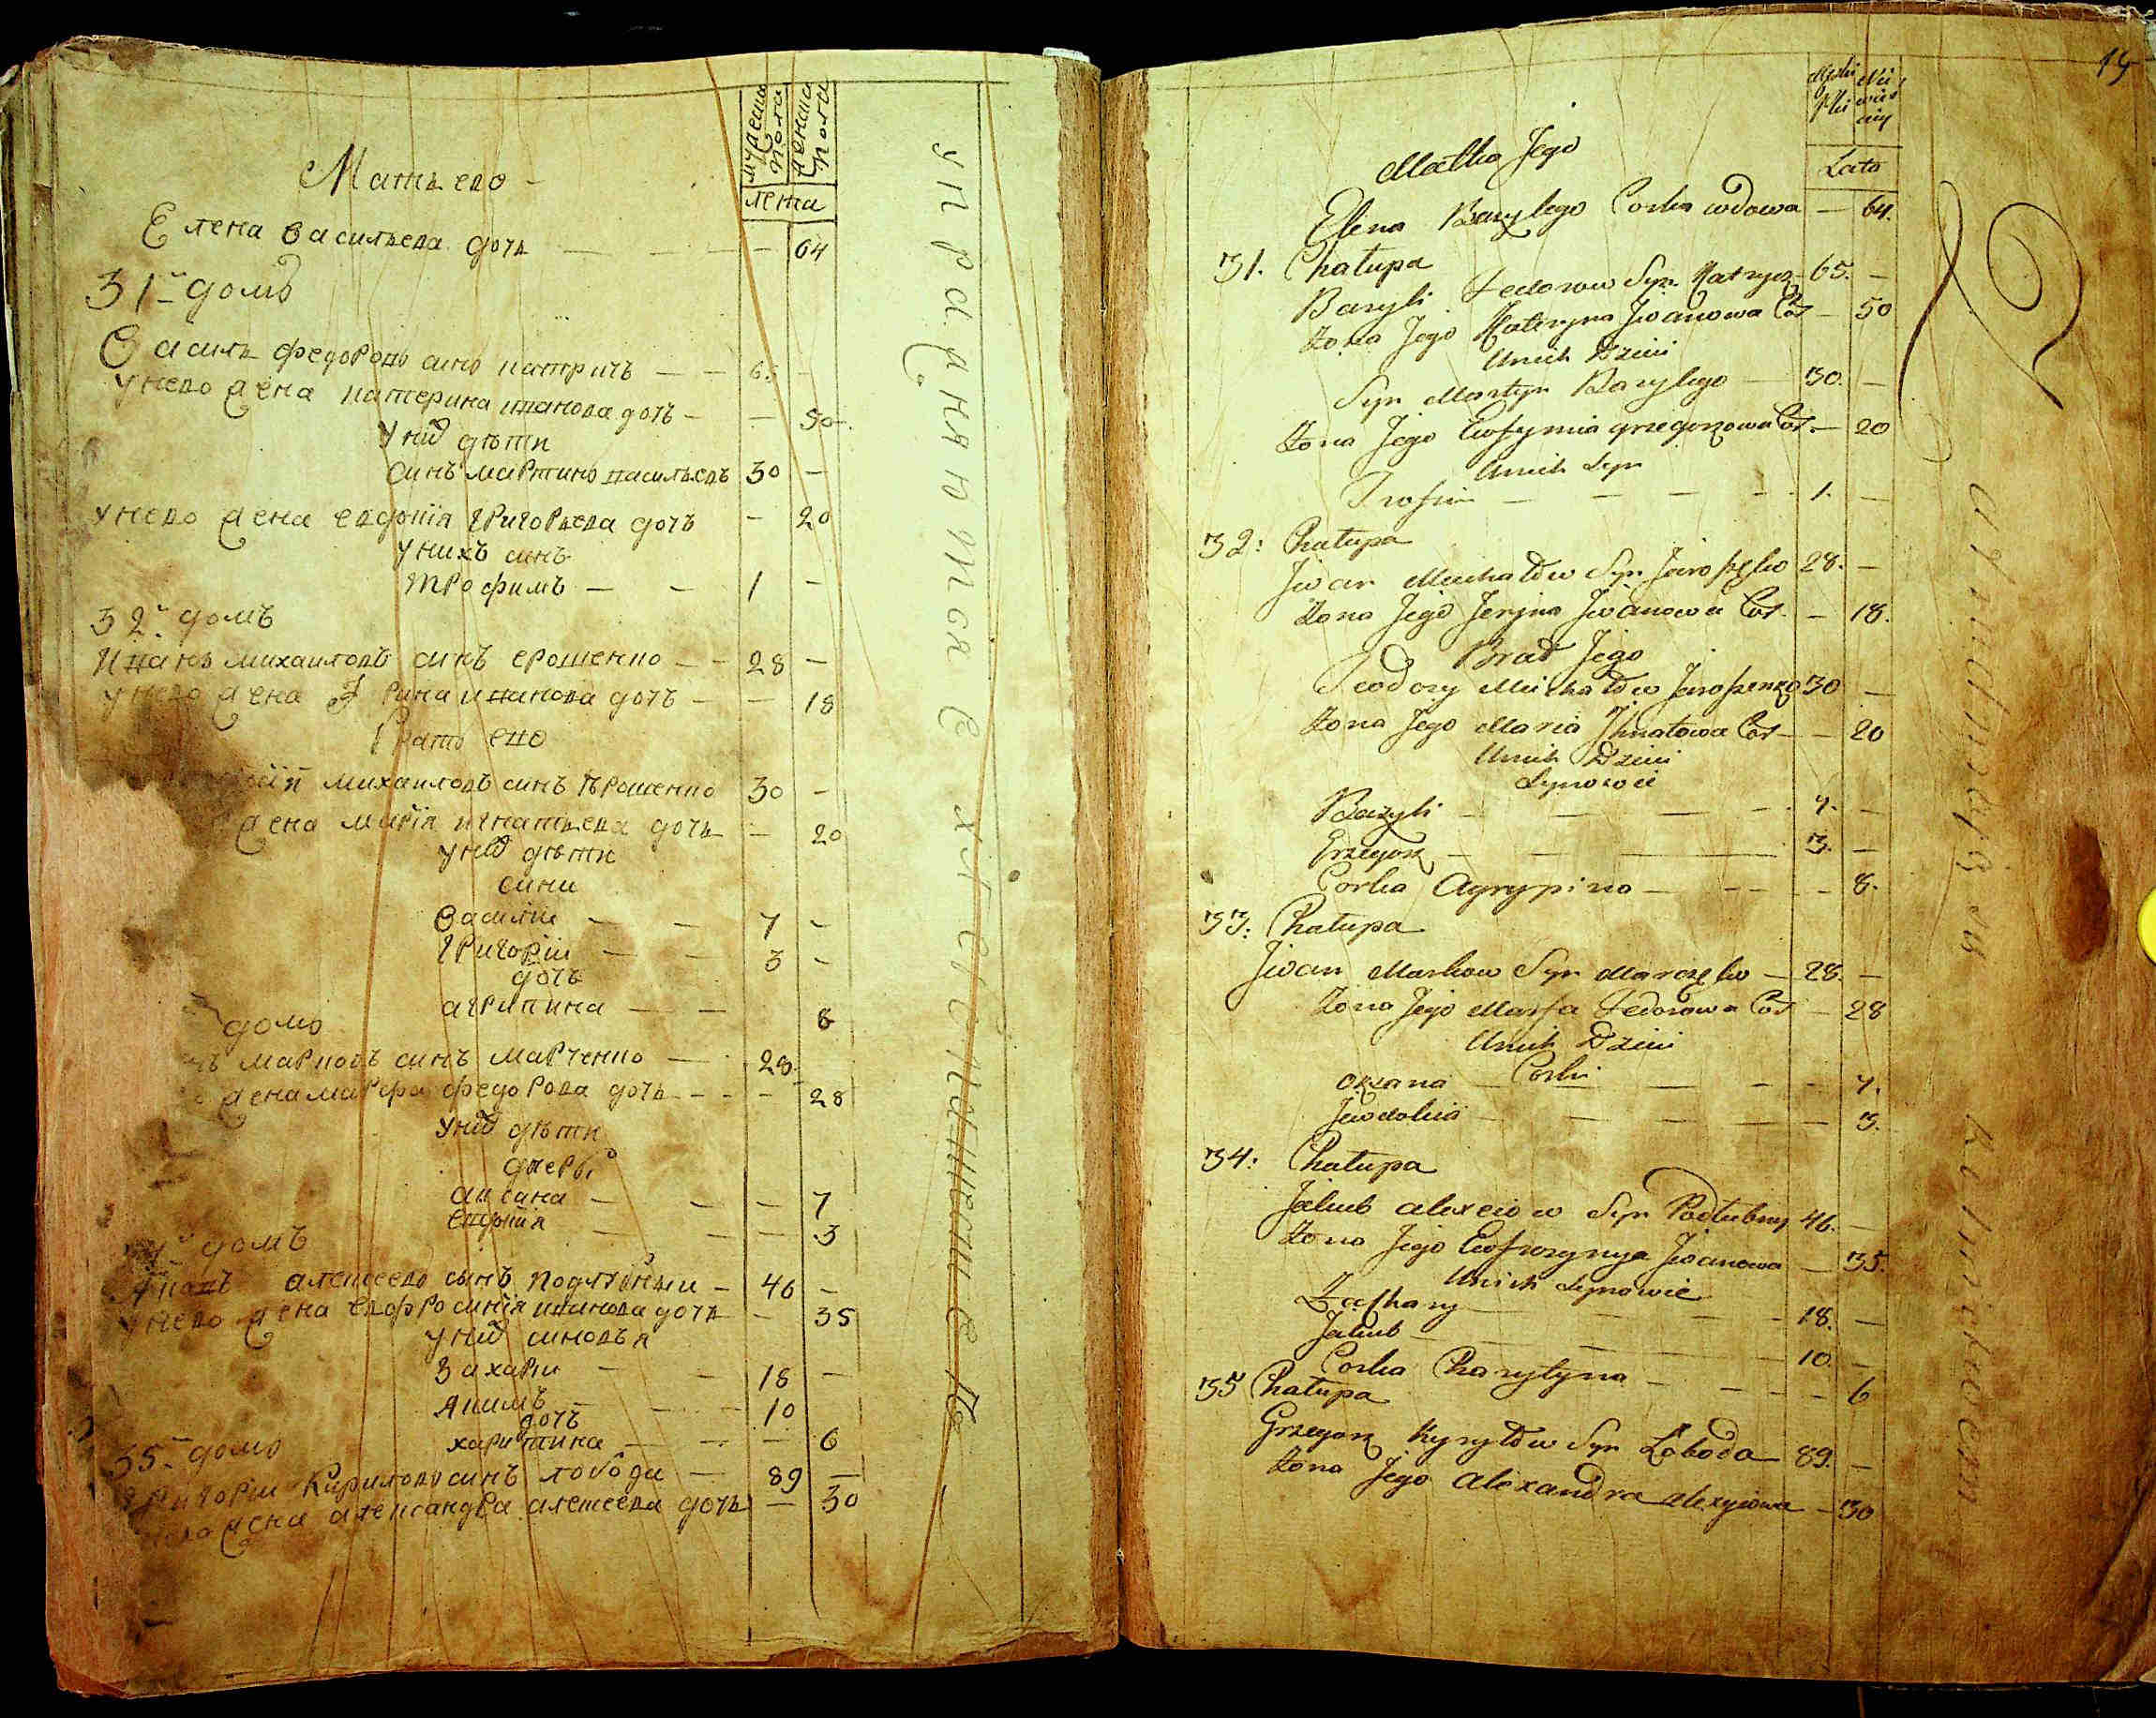 мужеска пола
женска пола
лета
Мать его -
Елена васильева дочь — — — 64
31й домъ
Василь федоровъ синъ катричъ — — 65 —
у него жена катерина иванова дочь — — 50
у них дѣти
синъ мартинъ васильевъ 30 —
у него жена евдокія григорьева дочь — 20
у нихъ синъ
трофимъ — — 1 —
32й домъ
Иванъ михаиловъ синъ ерошенко — — 28 —
у него жена Ірина иванова дочь — — 18
братъ его
михаиловъ синъ ерошенко 30 —
жена марія игнатьева дочь — 20
у них дѣти
сини
василіи — — 7 —
григоріи — — 3 —
дочь
агрипина — — 8
домъ
марковъ синъ марченко — 28 —
жена марфа федорова дочь — — — 28
у них дѣти
дчери
аксана — — — 7
евдокія — — — 3
домъ
Яковъ алексеевъ сынъ подлубныи — 46 —
у него жена евфросинія иванова дочь — 35
у них синовья
захарий — — 18 —
якимъ — — 10
дочь
харитина — — — 6
35й домъ
григоріи Кириловъ синъ лобода — 89 —
него жена александра алексеева дочь — 30
управляютса
15
Lata
Matka Jego
Elena Bazylego Corka wdowa — 64.
31. Chałupa
Bazyli Fedorow Syn Katrycz — 65. —
Zona Jego Kateryna Jwanowa Cor — 50
Unich Dzieci
Syn Martyn Bazylego — 30. —
Zona Jego Ewfymia grzegorzowa Cor. — 20
Unich Syn
Trofim — — — — 1. —
32: Chałupa
Jwan Michałow Syn Jaroszenko 28. —
Zona Jego Jeryna Jwanowa Cor. — 18.
Brat Jego
Teodory Michałow Jaroszenko 30 —
Zona Jego Maria Jhnatowa Cor — — 20
Unich Dzieci
Synowie
Bazyli — — — — 7. —
Grzegorz — — — 3. —
Corka Agrypina — — — — 8.
33: Chałupa
Jwan Markow Syn Marczenko — 28. —
Zona Jego Marfa Fedorowa Cor — 28
Unich Dzieci
Corki
oxana — — — — 7.
Jewdokia — — — — 3.
34: Chałupa
Jakub alexeiow Syn Podłubny 46. —
Zona Jego Ewfrozynya Jwanowa — 35.
Unich Synowie
Zachary — — — — 18. —
Jakub — — — — 10. —
Corka Charytyna — — — — 6
35 Chałupa
Grzegorz Kyryłow Syn Łoboda — 89. —
Zona Jego Alexandra alexyiowa — 30